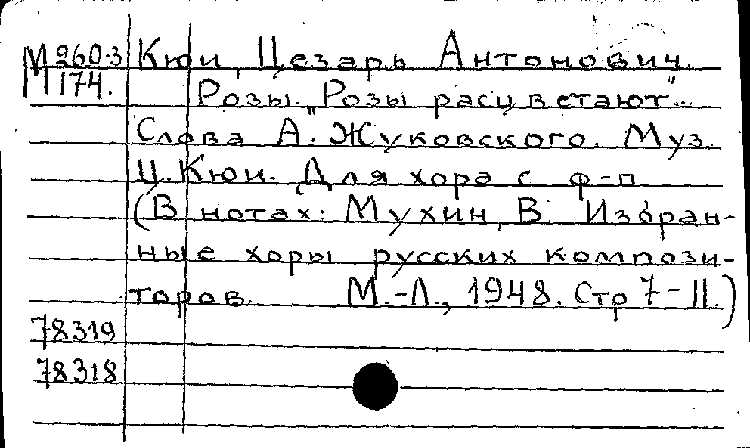 М260.3 Кюи, Цезарь Антонович.
М174. Розы. "Розы расцветают"..
Слова А. Жуковского. Муз.
Ц. Кюи. Для хора с ф-п.
(В нотах: Мухин, В. Избран-
ные хоры русских компози-
торов. М.-Л., 1948. Стр 7-11.)
78319
78318